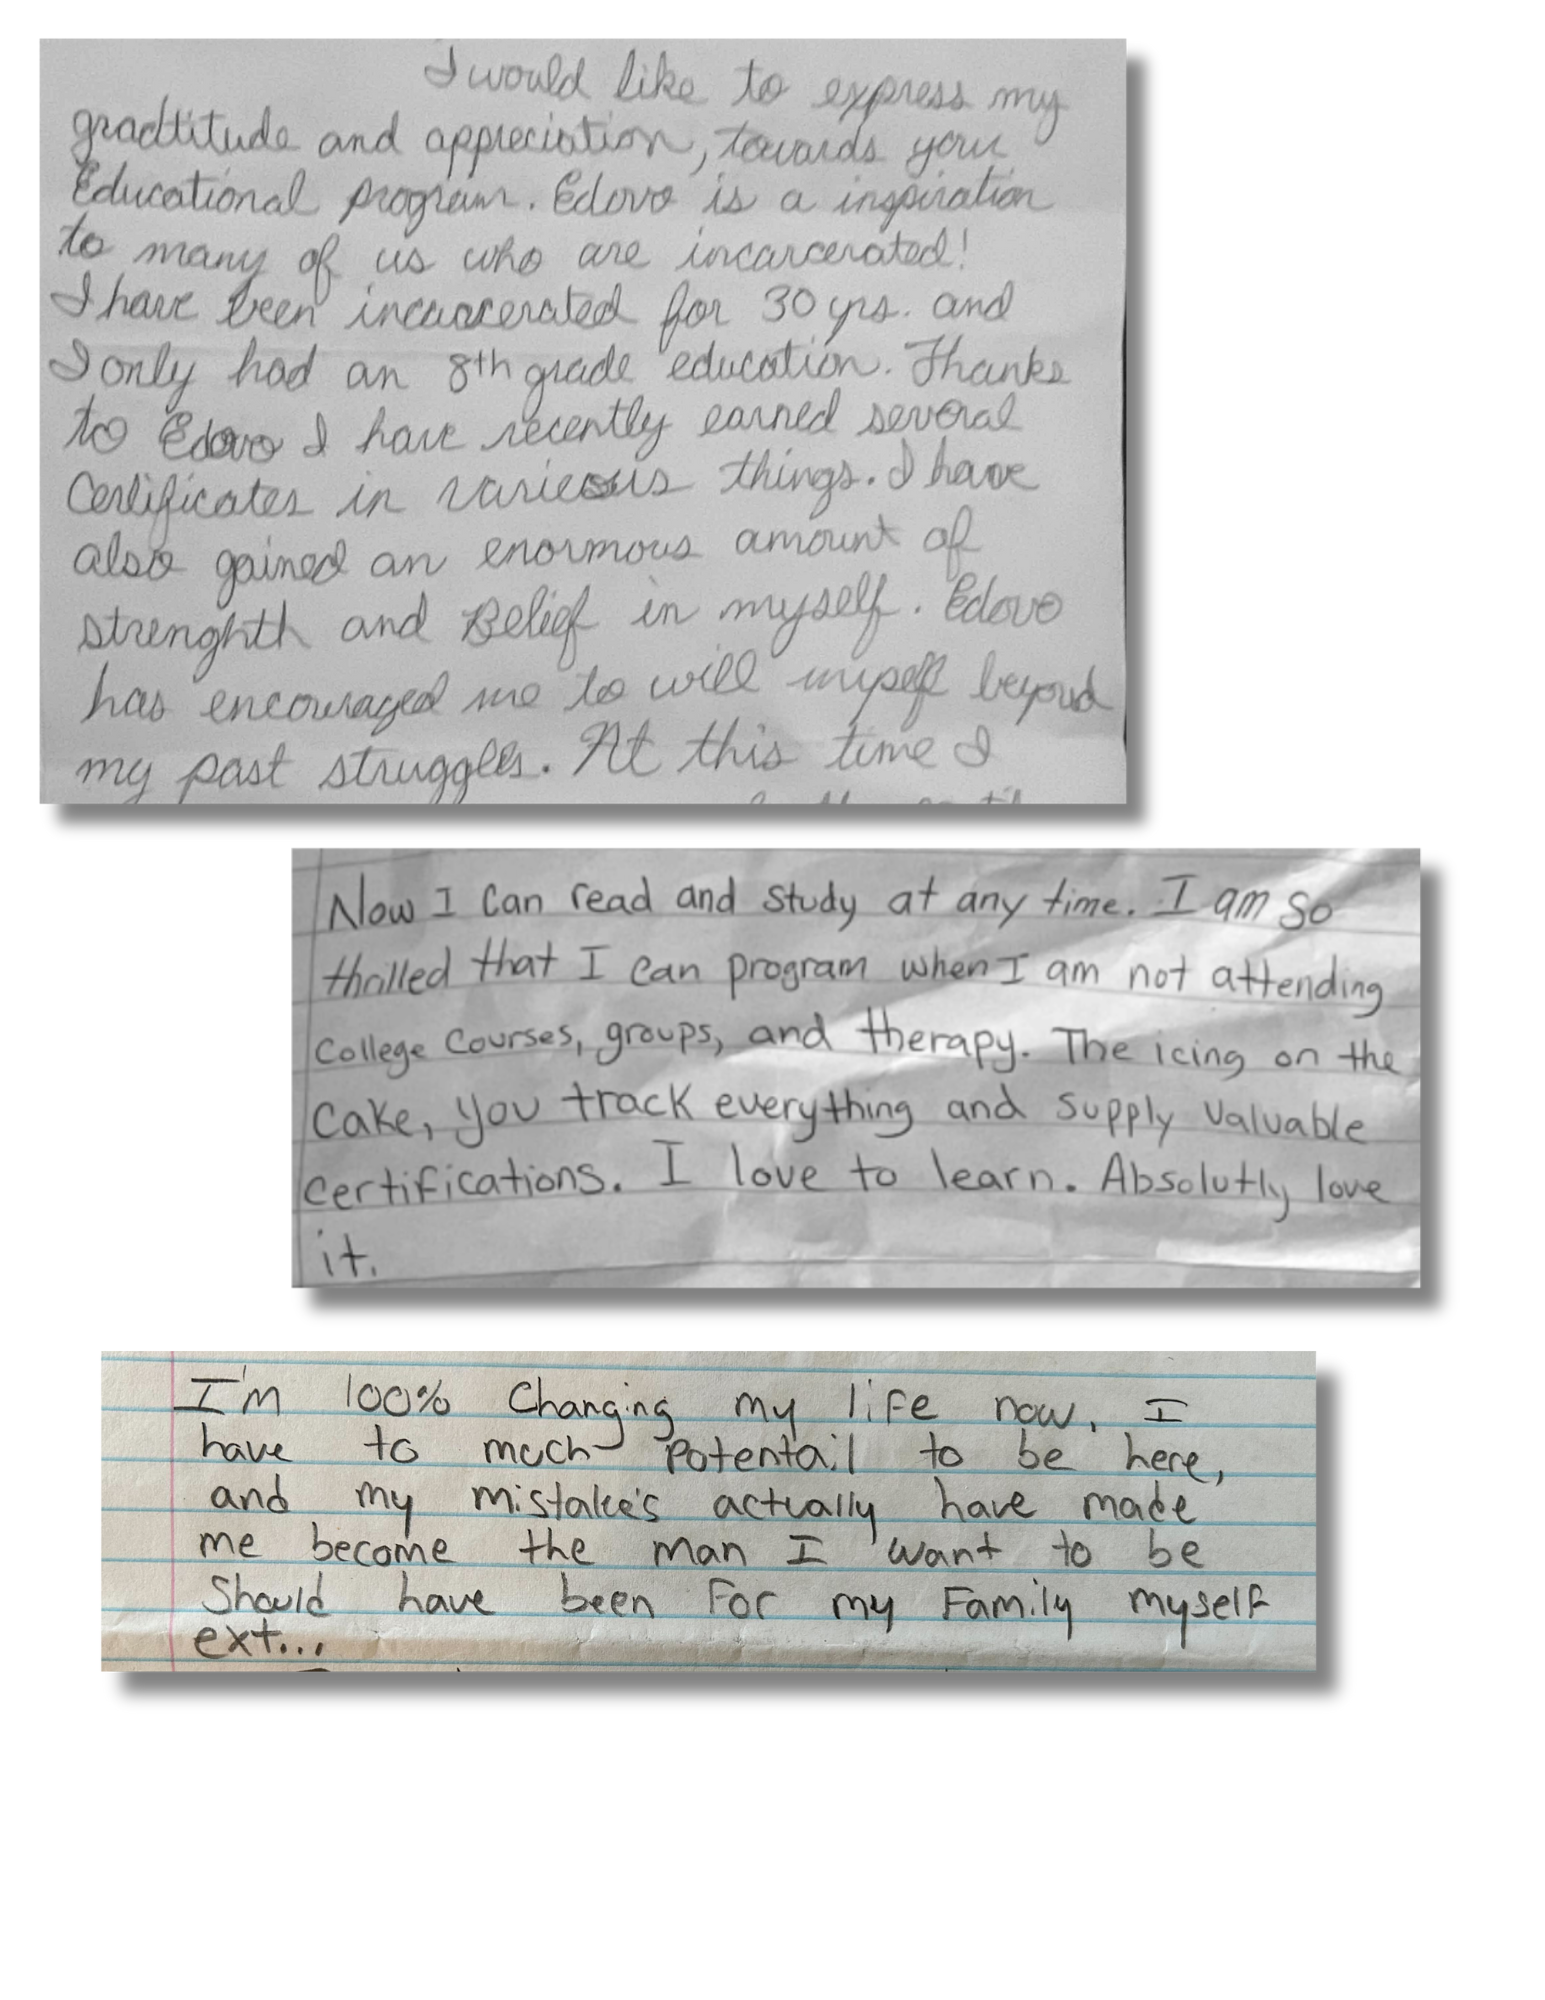 I would like to express my
gradtitude and appreciation, towards your
Educational program. Edovo is a inspiration
to many of us who are incarcerated!
I have been incarcerated for 30 yrs. and
I only had an 8th grade education. Thanks
to Edovo I have recently earned several
Certificates in varieous things. I have
also gained an enormous amount of
strenghth and Belief in myself. Edovo
has encouraged me to will myself beyond
my past struggles. At this time I
Now I can read and study at any time. I am so
thrilled that I can program when I am not attending
college courses, groups, and therapy. The icing on the
cake, you track everything and supply valuable
certifications. I love to learn. Absolutly love
it.
I'm 100% Changing my life now. I
have to much potentail to be here,
and my mistake's actually have made
me become the man I want to be
Should have been For my Family myself
ext...